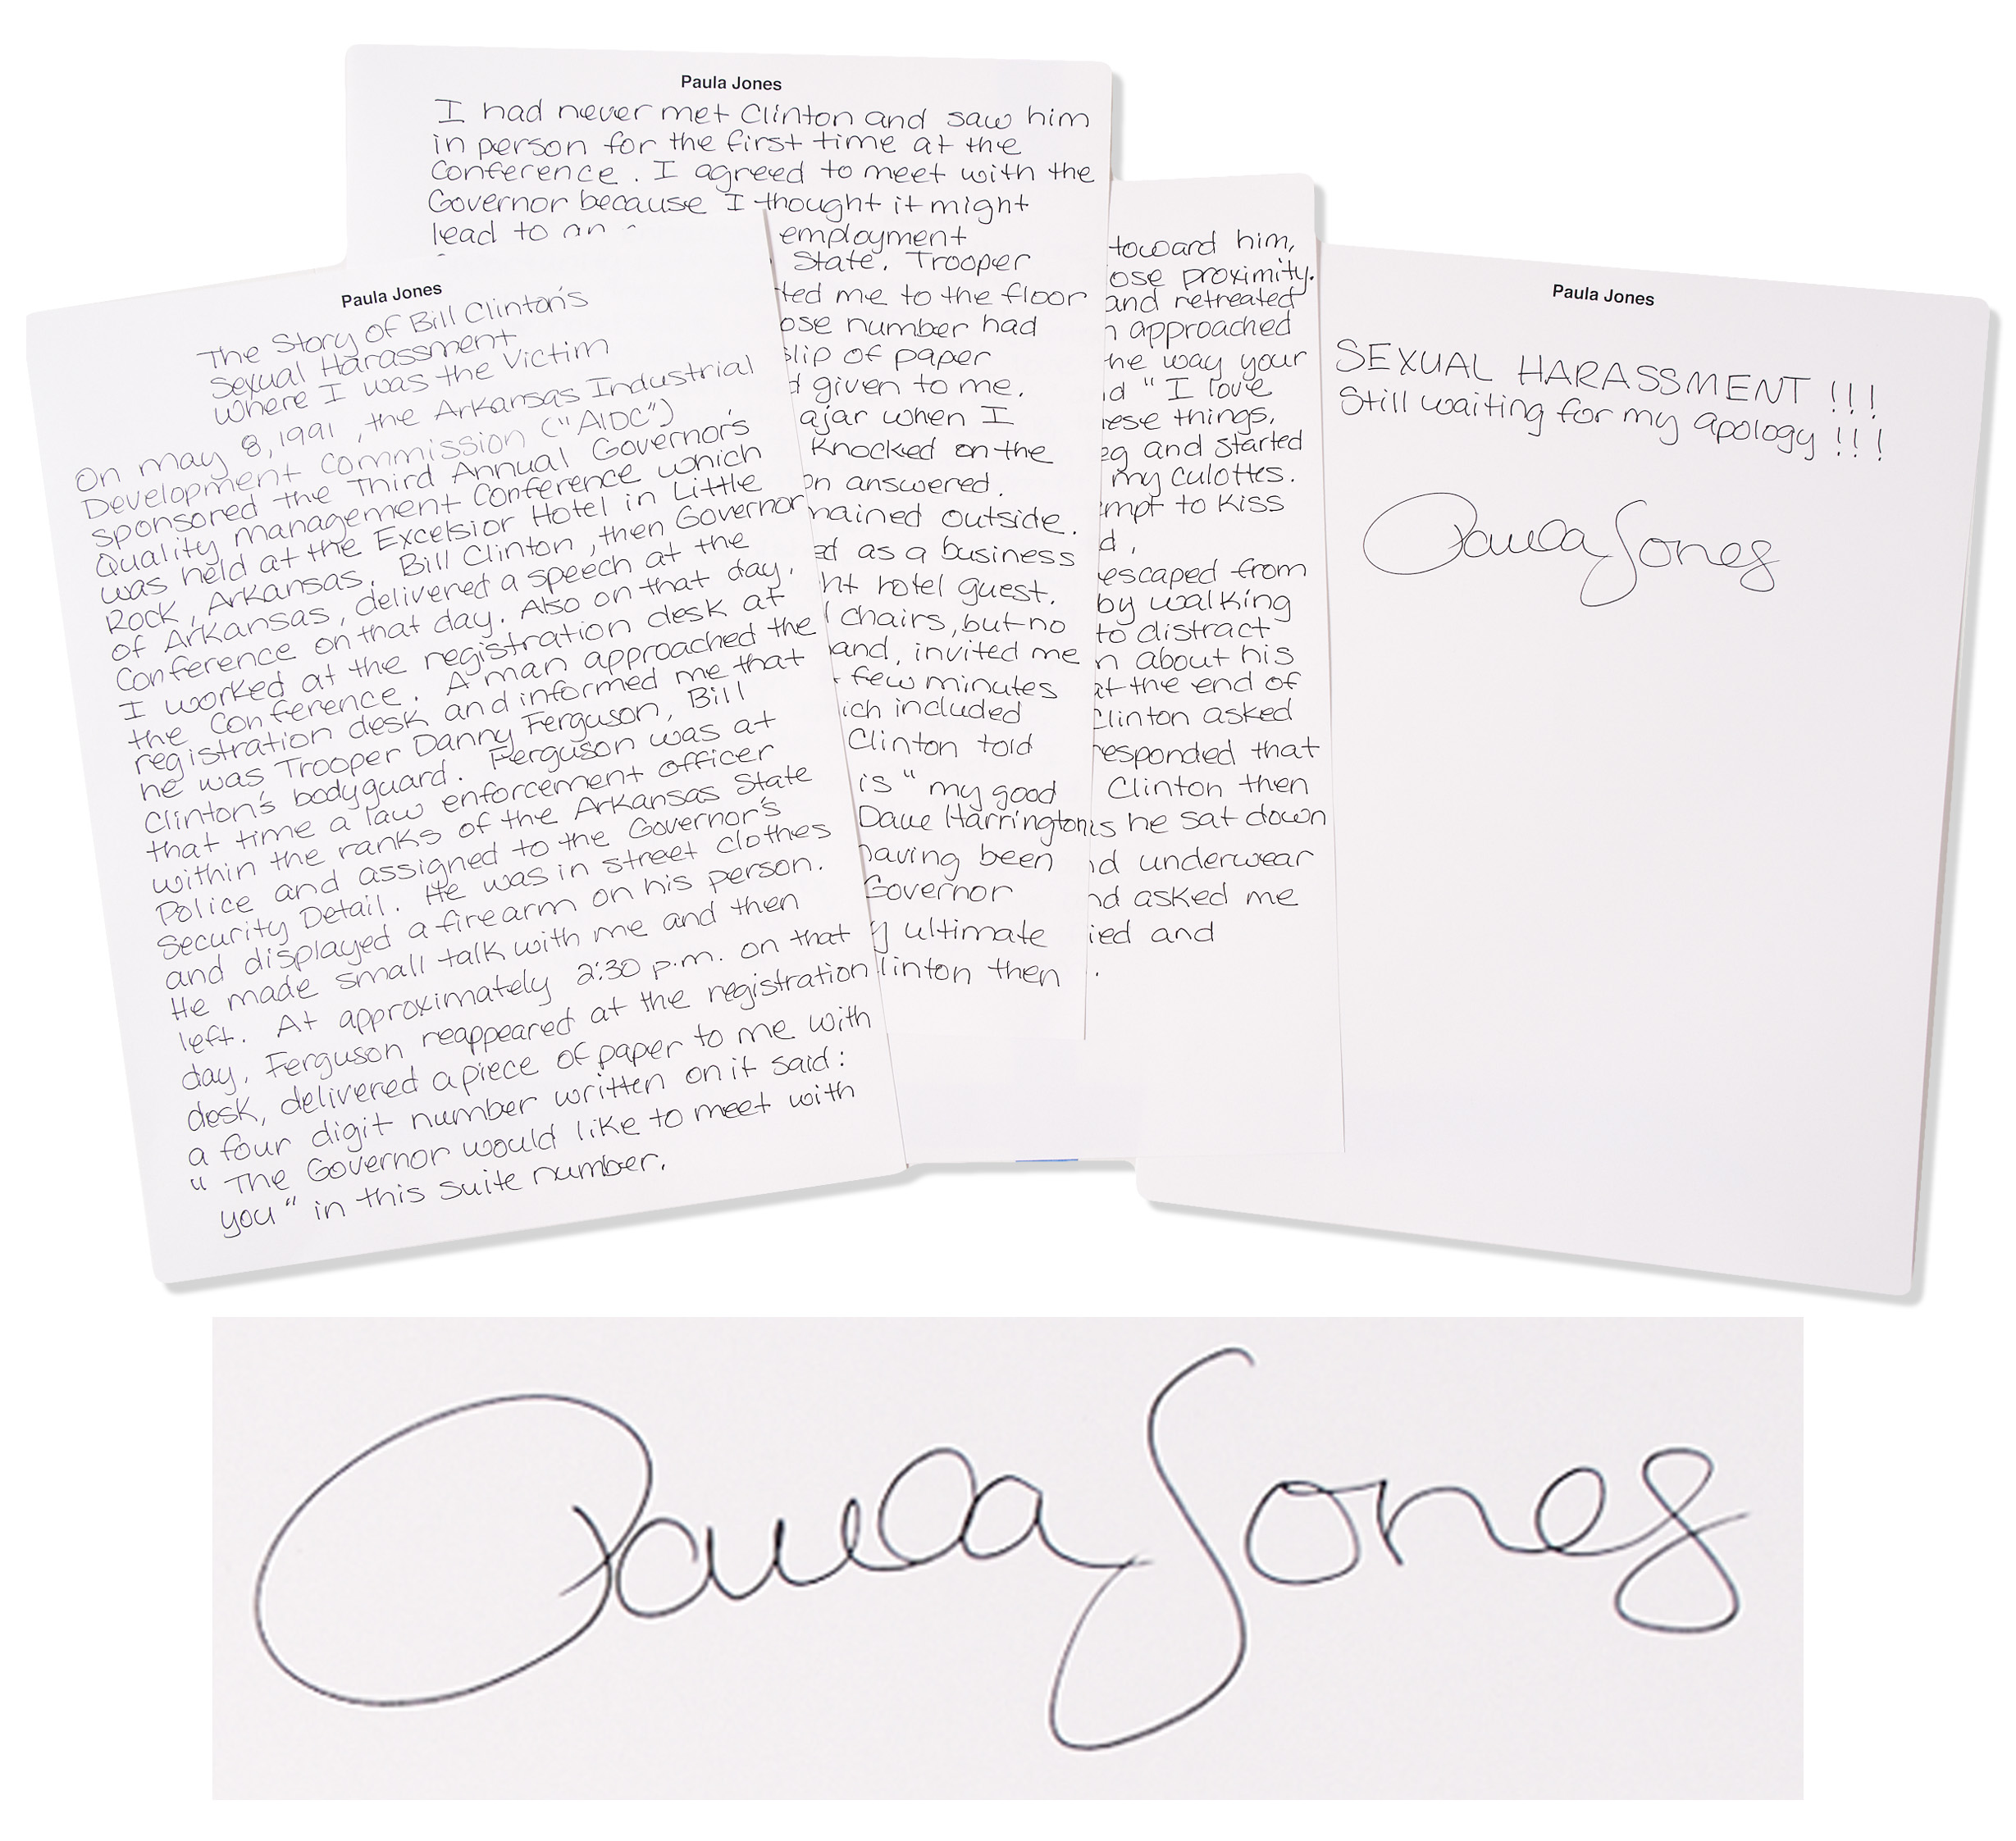 Paula Jones
The Story of Bill Clinton's
Sexual Harassment
where I was the Victim
On may 8, 1991, the Arkansas Industrial
Development Commission ("AIDC")
sponsored the Third Annual Governor's
Quality management Conference which
was held at the Excelsior Hotel in Little
Rock, Arkansas. Bill Clinton, then Governor
of Arkansas, delivered a speech at the
Conference on that day. Also on that day,
I worked at the registration desk at
the Conference. A man approached the
registration desk and informed me that
he was Trooper Danny Ferguson, Bill
Clinton's bodyguard. Ferguson was at
that time a law enforcement officer
within the ranks of the Arkansas State
Police and assigned to the Governor's
Security Detail. He was in street clothes
and displayed a firearm on his person.
He made small talk with me and then
left. At approximately 2:30 p.m. on that
day, Ferguson reappeared at the registration
desk, delivered a piece of paper to me with
a four digit number written on it said:
"The Governor would like to meet with
you" in this suite number.
Paula Jones
I had never met Clinton and saw him
in person for the first time at the
Conference. I agreed to meet with the
Governor because I thought it might
lead to an employment
State. Trooper
me to the floor
number had
slip of paper
given to me.
ajar when I
Knocked on the
answered.
outside.
as a business
hotel guest.
chairs, but no
invited me
few minutes
included
Clinton told
is "my good
Dave Harrington
having been
Governor
ultimate
Clinton then
toward him,
proximity.
and retreated
approached
the way your
"I love
these things,
and started
my culottes.
to kiss
escaped from
by walking
to distract
about his
at the end of
Clinton asked
responded that
Clinton then
he sat down
underwear
asked me
and
Paula Jones
SEXUAL HARASSMENT !!!
Still waiting for my apology !!!
Paula Jones
Paula Jones